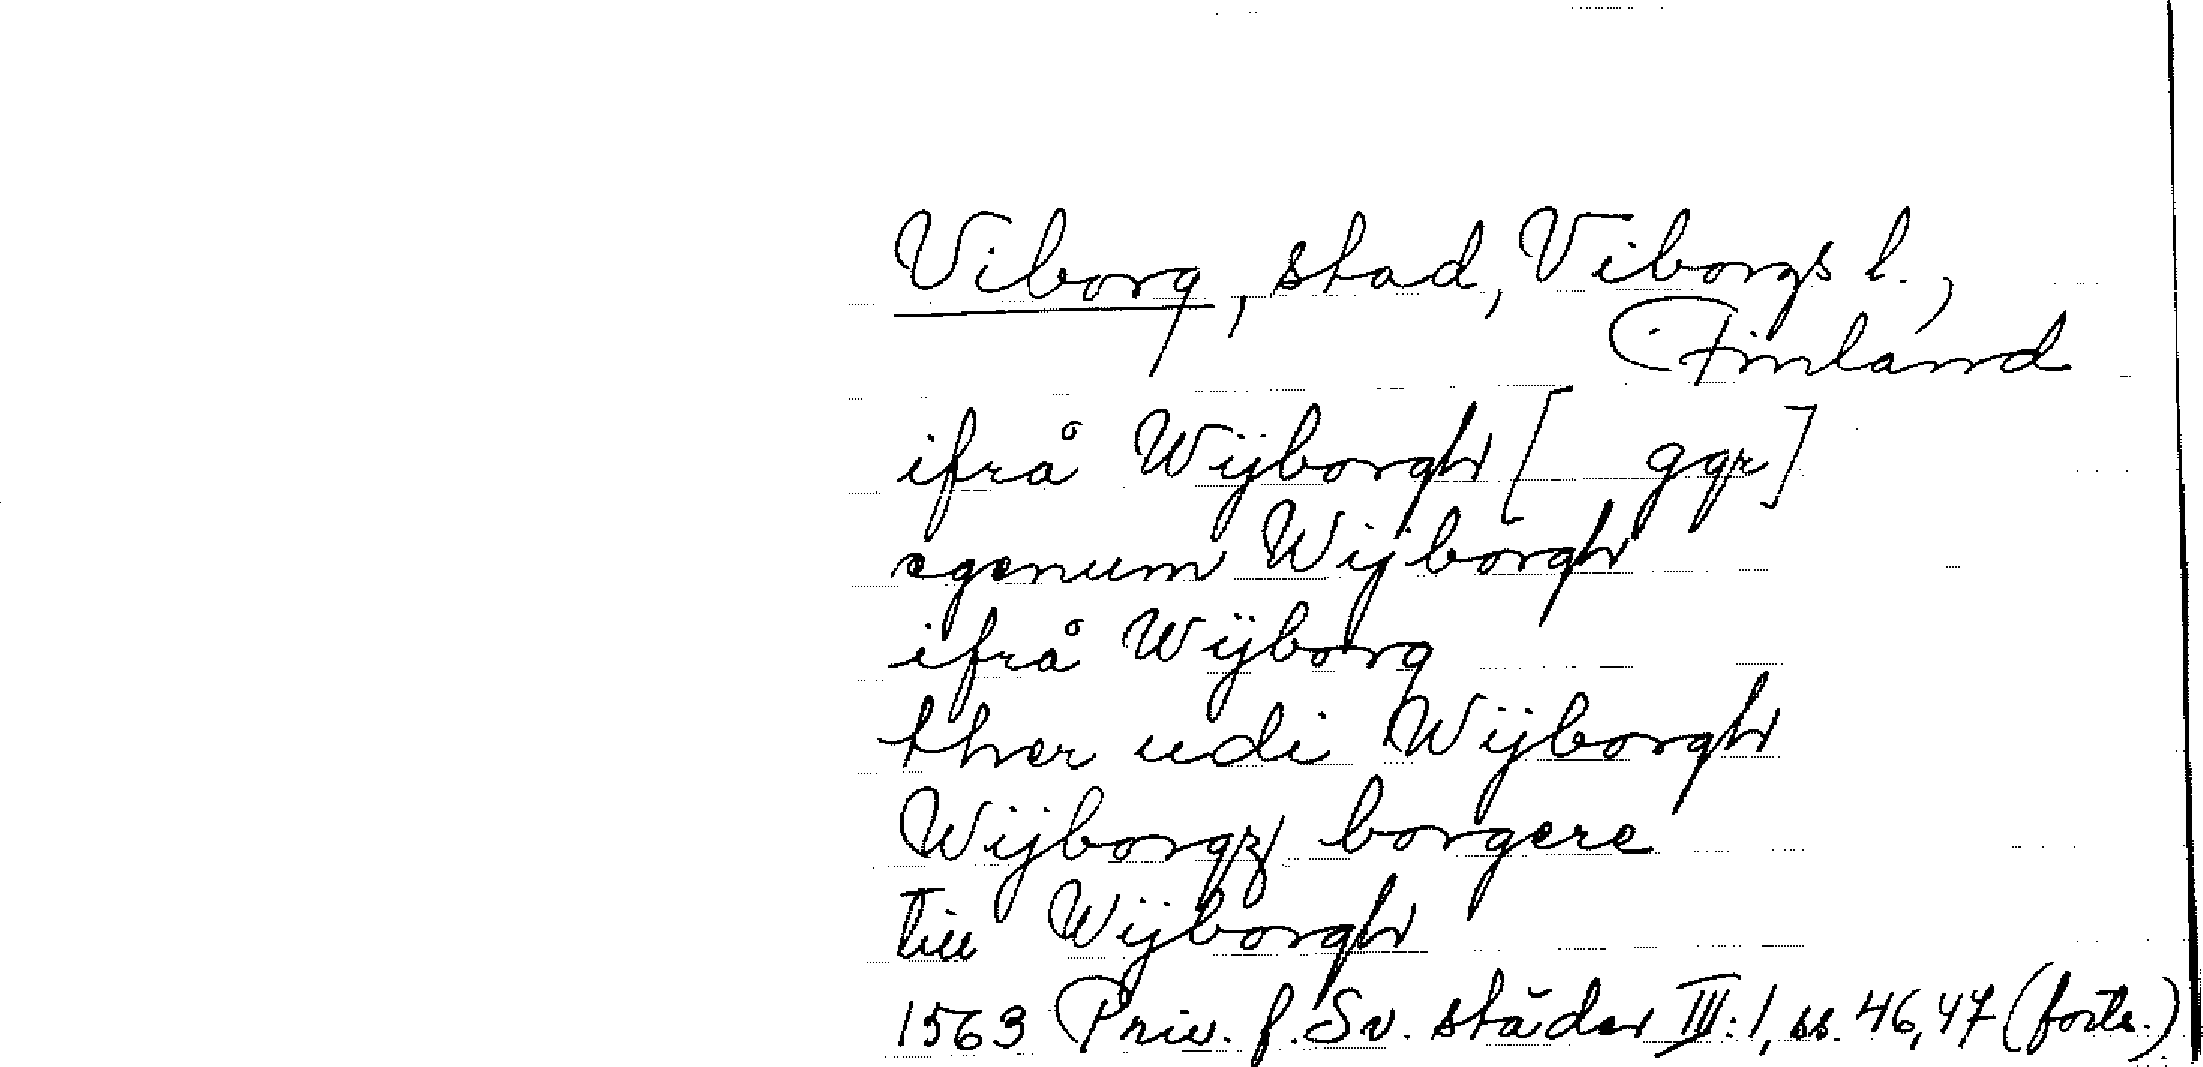 Viborg, stad, Viborgs l.,
Finland
ifrå Wijborgh [ ggr]
egenum Wijborgh
ifrå Wijborg
ther udi Wijborgh
Wijborgz borgere
till Wijborgh
1563 Priv. f. Sv. städer III:1, ss. 46, 47 (forts.)